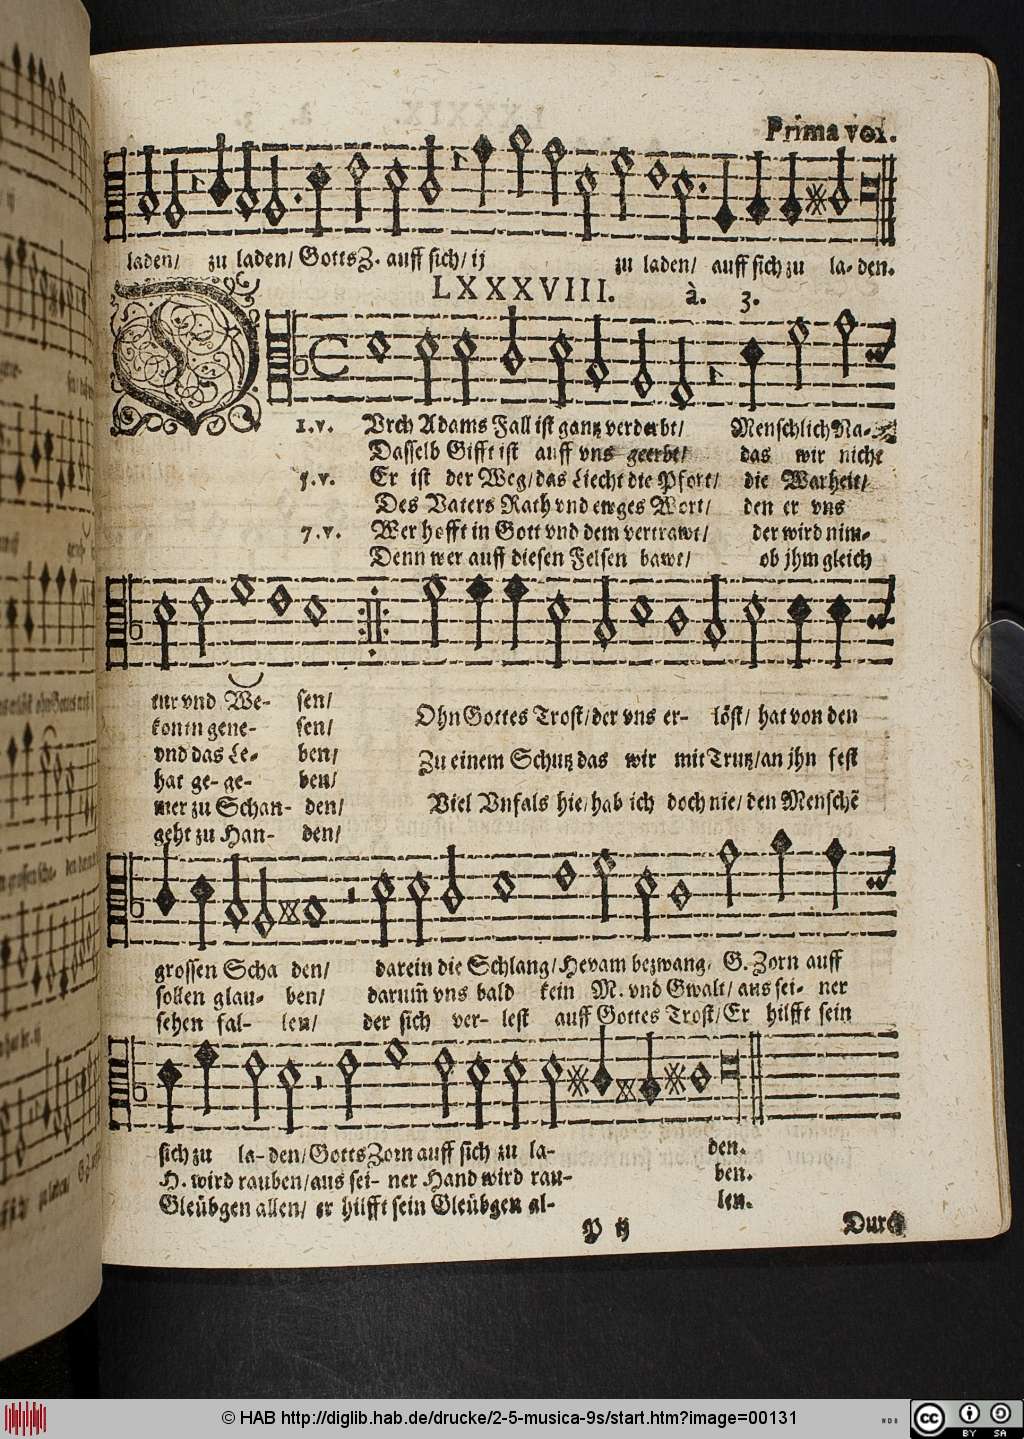 Prima vox.
laden/ zu laden/ Gotts Z. auff sich/ ij zu laden/ auff sich zu la- den.
LXXXVIII. à. 3.
D
1.v. Urch Adams Fall ist gantz verderbt/ Menschlich Na-
Dasselb Gifft ist auff vns geerbt/ das wir nicht
5.v. Er ist der Weg/ das Liecht die Pfort/ die Warheit/
Des Vaters Rath vnd ewges Wort/ den er vns
7.v. Wer hofft in Gott vnd dem vertrawt/ der wird nim-
Denn wer auff diesen Felsen bawt/ ob jhm gleich
tur vnd We- sen/
kontn gene- sen/
vnd das Le- ben/
hat ge- ge- ben/
mer zu Schan- den/
geht zu Han- den/
Ohn Gottes Trost/ der vns er- löst/ hat von den
Zu einem Schutz das wir mit Trutz/ an jhn fest
Viel Vnfals hie/ hab ich doch nie/ den Menschẽ
grossen Scha den/ darein die Schlang/ Hevam bezwang/ G. Zorn auff
sollen glau- ben/ darum̃ vns bald kein M. vnd Gwalt/ aus sei- ner
sehen fal- len/ der sich ver- lest auff Gottes Trost/ Er hilfft sein
sich zu la- den/ Gotts Zorn auff sich zu la- den.
H. wird rauben/ aus sei- ner Hand wird rau- ben.
Gleübgen allen/ er hilfft sein Gleübgen al- len.
P ij Durch
© HAB http://diglib.hab.de/drucke/2-5-musica-9s/start.htm?image=00131
cc BY SA